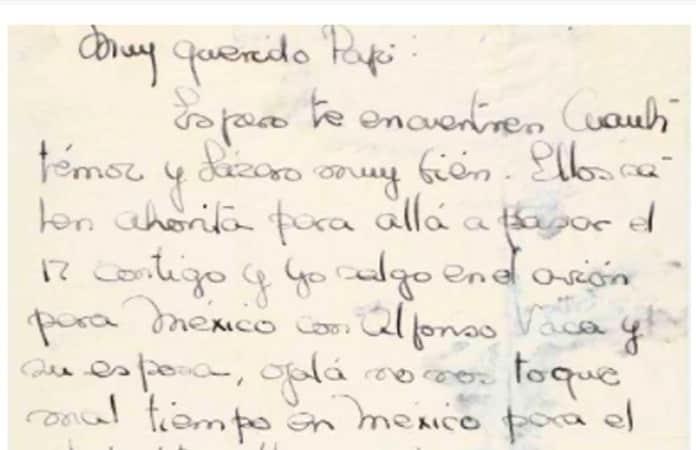 Muy querido Papi:
Espero te encuentren Cuauh-
témoc y Lázaro muy bién. Ellos sa-
len ahorita para allá a pasar el
12 contigo y yo salgo en el avión
para México con Alfonso Vaca y
su esposa, ojalá no nos toque
mal tiempo en México para el